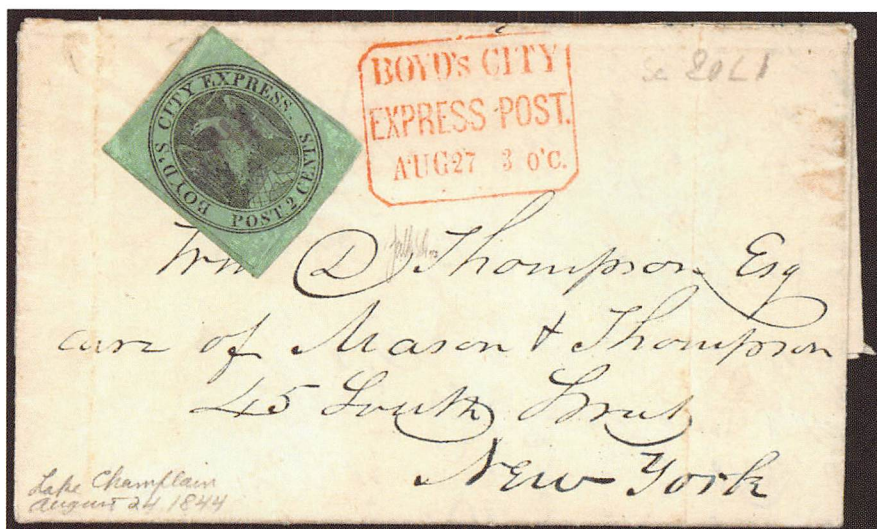 BOYD'S CITY EXPRESS.
POST 2 CENTS
BOYD's CITY
EXPRESS POST.
AUG 27 3 O'C.
Sc 20L1
Wm D Thompson Esq
care of Mason & Thompson
45 South Street
New York
Lake Champlain
August 24 1844